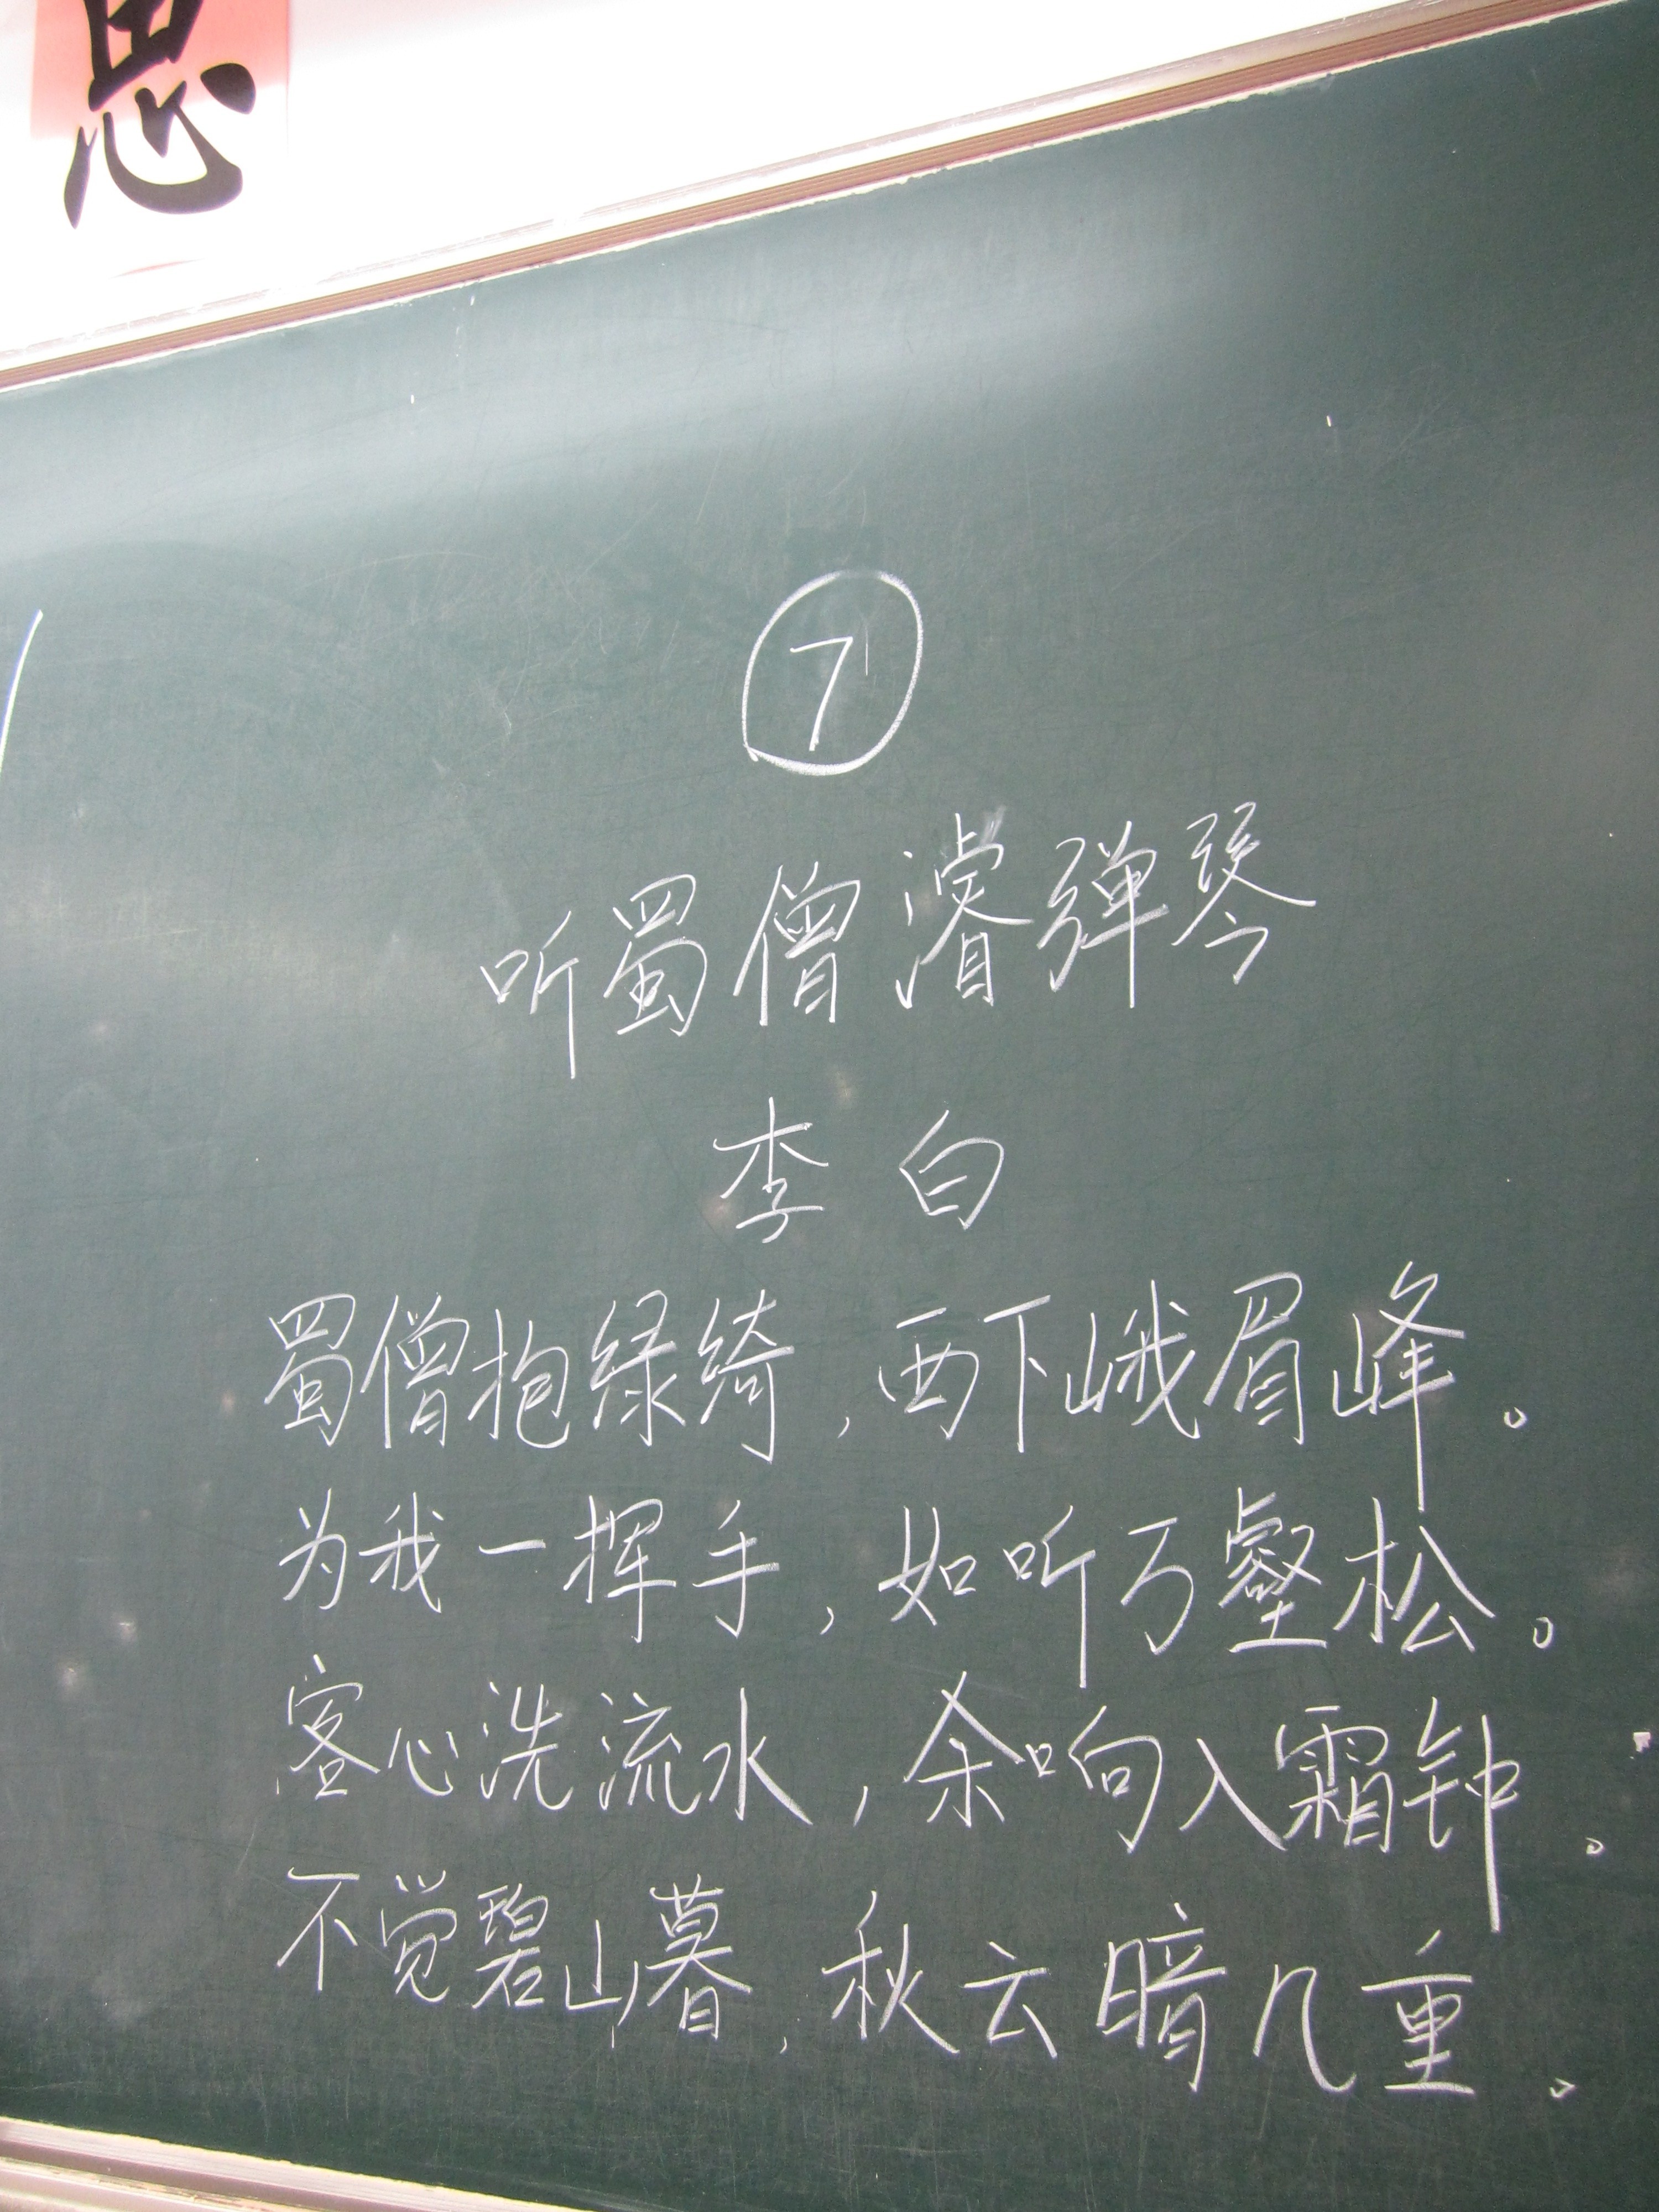 思
⑦
听蜀僧濬弹琴
李白
蜀僧抱绿绮,西下峨眉峰。
为我一挥手,如听万壑松。
客心洗流水,余响入霜钟。
不觉碧山暮,秋云暗几重。